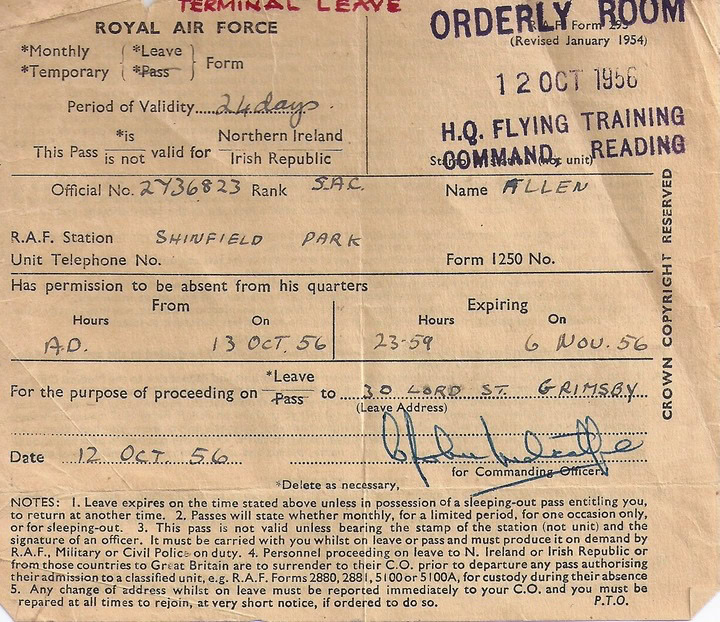 TERMINAL LEAVE
ROYAL AIR FORCE
ORDERLY ROOM
R.A.F. Form 295
(Revised January 1954)
*Monthly *Leave
*Temporary *Pass Form
12 OCT 1956
Period of Validity 24 days
H.Q. FLYING TRAINING
COMMAND, READING
Stamp of Station (not unit)
*is Northern Ireland
This Pass is not valid for Irish Republic
Official No. 2736823 Rank S.A.C. Name ALLEN
R.A.F. Station SHINFIELD PARK
Unit Telephone No. Form 1250 No.
Has permission to be absent from his quarters
From Expiring
Hours On Hours On
A.D. 13 OCT. 56 23-59 6 NOV. 56
For the purpose of proceeding on *Leave Pass to 30 LORD ST. GRIMSBY
(Leave Address)
Date 12 OCT. 56
for Commanding Officer
*Delete as necessary,
NOTES: 1. Leave expires on the time stated above unless in possession of a sleeping-out pass entitling you,
to return at another time. 2. Passes will state whether monthly, for a limited period, for one occasion only,
or for sleeping-out. 3. This pass is not valid unless bearing the stamp of the station (not unit) and the
signature of an officer. It must be carried with you whilst on leave or pass and must produce it on demand by
R.A.F., Military or Civil Police on duty. 4. Personnel proceeding on leave to N. Ireland or Irish Republic or
from those countries to Great Britain are to surrender to their C.O. prior to departure any pass authorising
their admission to a classified unit, e.g. R.A.F. Forms 2880, 2881, 5100 or 5100A, for custody during their absence
5. Any change of address whilst on leave must be reported immediately to your C.O. and you must be
repared at all times to rejoin, at very short notice, if ordered to do so. P.T.O.
CROWN COPYRIGHT RESERVED